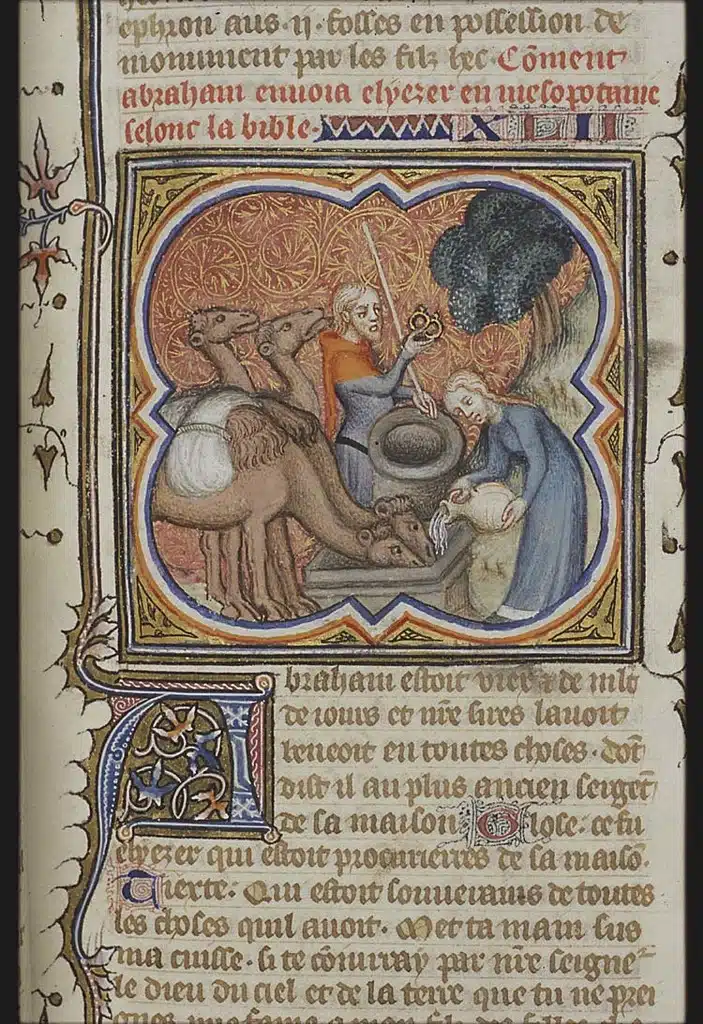 ephron aus ij. folles en possession de
monument par les filz hec. Cōment
abraham enuoia elyezer en mesopotame
selonc la bible. XLII
Abraham estoit viex & de mlt
de iours et nr̄e sires lauoit
beneoit en toutes choses. dōt
dist il au plus ancien sergēt
de sa maison Glose. ce fu
elyezer qui estoit procurierres de sa maisō.
Tiexte. Qui estoit souuerains de toutes
les choses quil auoit. Met ta main sus
ma cuisse. si te cōiurray par nr̄e seigne
le dieu du ciel et de la terre que tu ne prei